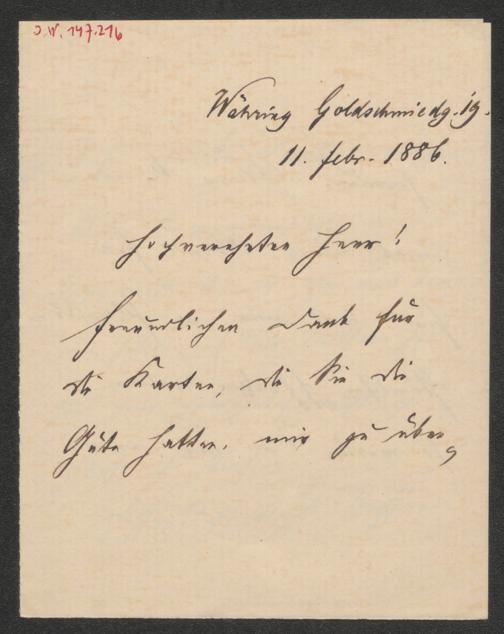 I.N. 147.216
Währing Goldschmiedg. 19.
11. Febr. 1886.
Hochverehrter Herr!
Freundlichen Dank für
die Karten, die Sie die
Güte hatten, mir zu über⸗